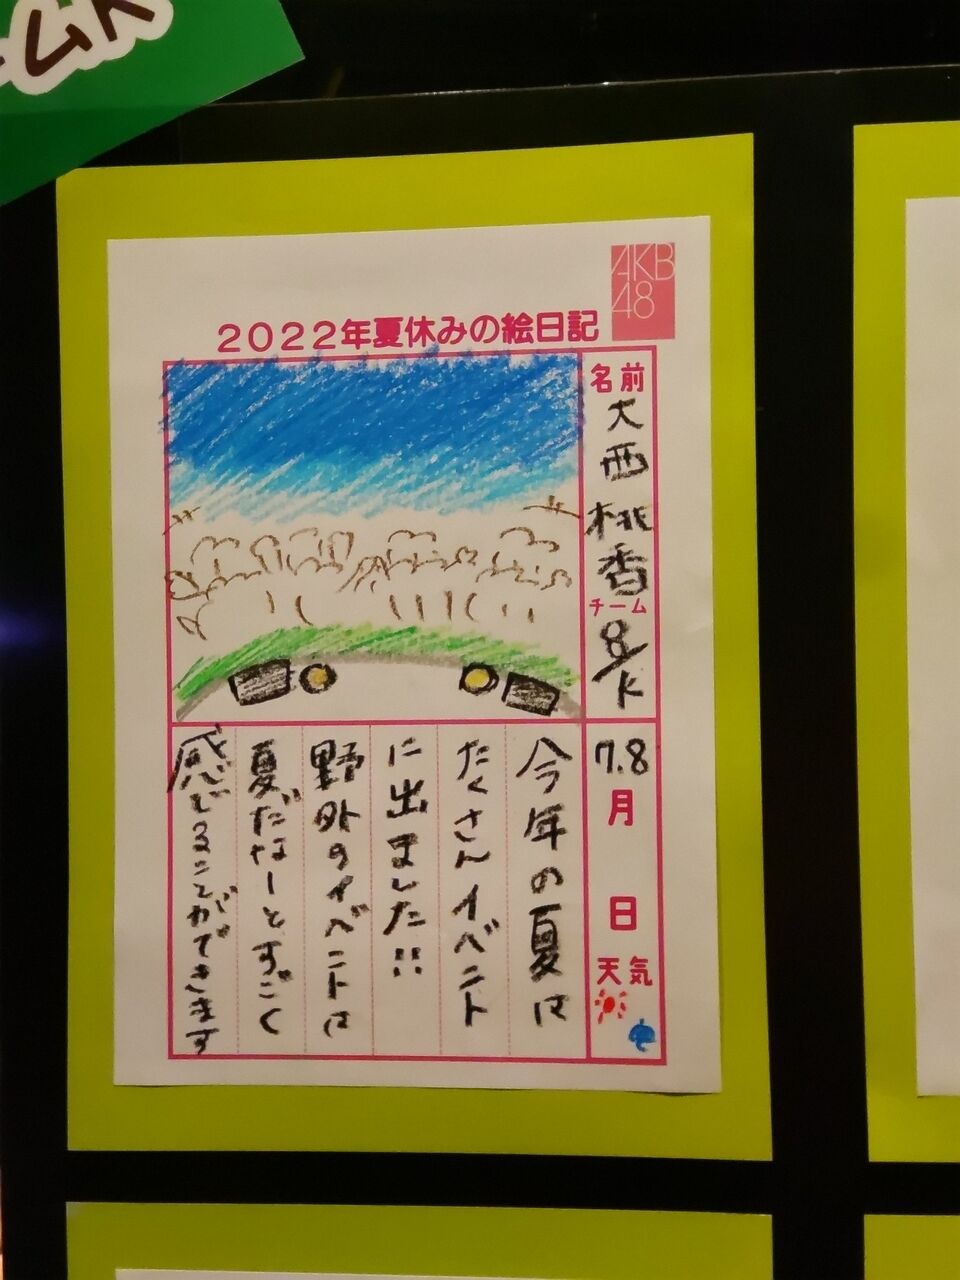 ムK
AKB
48
2022年夏休みの絵日記
名前
大西桃香
チーム
8/K
7.8
月
日
天気
今年の夏は
たくさんイベント
に出ました!!
野外のイベントは
夏だなーとすごく
感じることができます